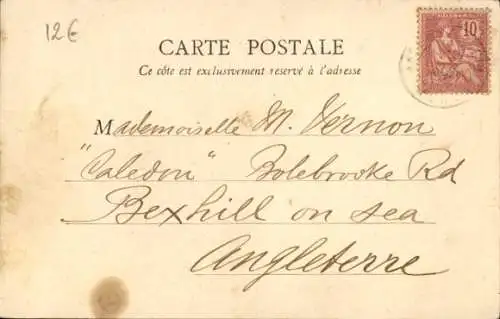 12€
10
CARTE POSTALE
Ce côte est exclusivement reservé à l'adresse
Mademoiselle M. Vernon
"Caledon" Bolebrooke Rd
Bexhill on sea
Angleterre